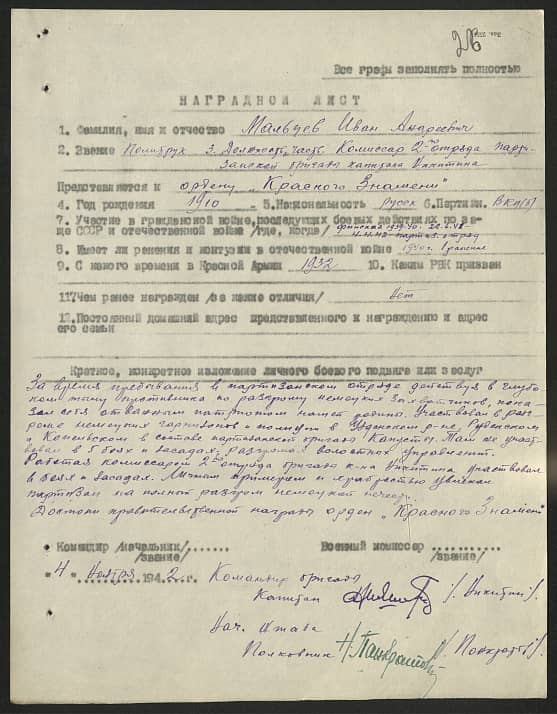 26
Все графы заполнять полностью
НАГРАДНОЙ ЛИСТ
1. Фамилия, имя и отчество Мальцев Иван Андреевич
2. Звание Политрук 3. Должность, часть Комиссар 2го отряда парти-
занской бригады капитана Никитина
Представляется к ордену „Красного Знамени"
4. Год рождения 1910 5. Национальность русск 6. Партийн. ВКП(б)
7. Участие в гражданской войне, последующих боевых действиях по за-
ще СССР и отечественной войне /где, когда/ финской 1939-40.
партиз. отряд
8. Имеет ли ранения и контузии в отечественной войне 1 ранение
9. С какого времени в Красной Армии 1932 10. Каким РВК призван
11. Чем ранее награжден /за какие отличия/ Нет
12. Постоянный домашний адрес представленного к награждению и адрес
его семьи
Краткое, конкретное изложение личного боевого подвига или заслуг
За время пребывания в партизанском отряде действуя в глубо-
ком тылу противника по разгрому немецких захватчиков, пока-
зал себя отважным патриотом нашей родины. Участвовал в раз-
громе немецких гарнизонов и полиции в р-не,
и в составе партизанской бригады участ-
вовал в 5 боях и засадах, разгроме волостных управлений.
Работая комиссаром 2го отряда бригады к-на Никитина участвовал
в боях и засадах. Личным примером и храбростью увлекал
партизан на полный разгром немецкой нечести.
Достоин правительственной награды орден „Красного Знамени"
Командир /начальник/.......
/звание/
Военный комиссар ..........
/звание/
"4" Ноября 1942 г. Командир бригады
Капитан /Никитин/.
Нач. Штаба
Полковник /Панкратов/.